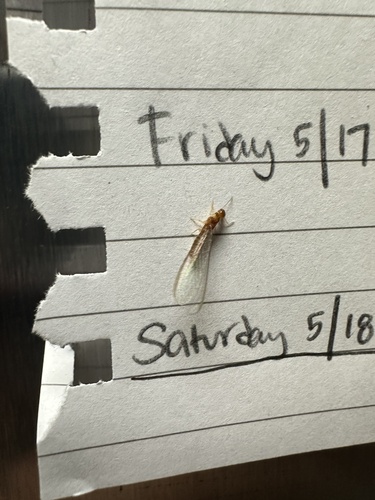 Friday 5/17
Saturday 5/18